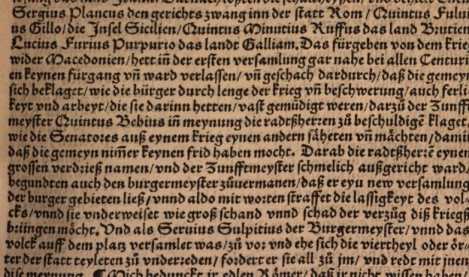 Sergius Plancus den gerichts zwang inn der statt Rom/ Quintus Fului
us Gillo/die Insel Sicilien/Quintus Minutius Ruffus das land Brutien
Lucius Furius Purpurio das landt Galliam. Das fürgeben von dem krie
wider Macedonien/hett in̄ der ersten versamlung gar nahe bei allen Centuri
en keynen fürgang vn̄ ward verlassen/vn̄ geschach dardurch/daß die gemeyn
sich beklaget/wie die bürger durch lenge der krieg vn̄ beschwerung/auch ferli
keyt vnd arbeyt/die sie darinn hetten/vast gemüdigt weren/darzů der Zunfft
meyster Quintus Bebius in̄ meynung die radtßherren zů beschuldigē klaget/
wie die Senatores auß eynem krieg eynen andern säheten vn̄ mächten/damit
daß die gemeyn nim̄er keynen frid haben mocht. Darab die radtßherrē eynen
grossen verdrieß namen/vnd der Zunfftmeyster schmelich außgericht ward/
begundten auch den burgermeyster zůuermanen/daß er eyn new versamlung
der burger gebieten ließ/vnnd aldo mit worten straffet die lassigkeyt des vol
cks/vnnd sie vnderweiset wie groß schand vnnd schad der verzüg diß kriegß
bringen möcht. Vnd als Seruius Sulpitius der Burgermeyster/vnnd das
volck auff dem platz versamlet was/zů vor vnd ehe sich die viertheyl oder ör
ter der statt teyleten zů vnderreden/fordert er sie all zů jm/vnd redt mit jnen
dise meynung. Mich bedunckt ir edlen Römer/daß